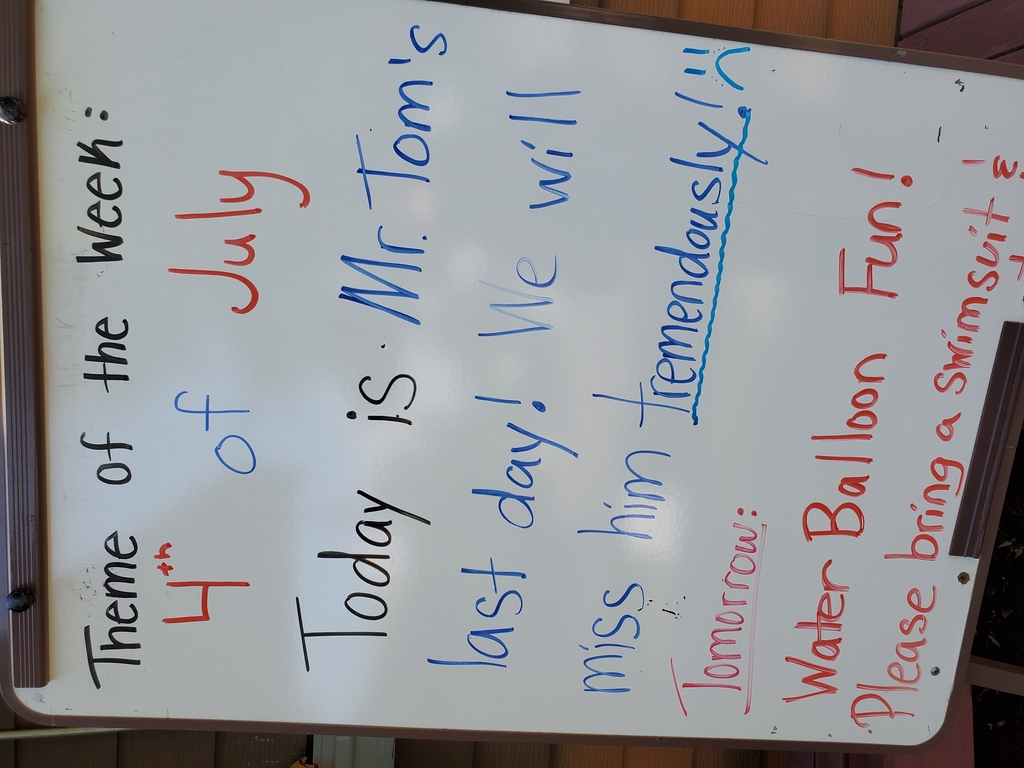 Theme of the Week:
4th of July
Today is Mr. Tom's
last day! We will
miss him tremendously! :(
Tomorrow:
Water Balloon Fun!
Please bring a swimsuit &